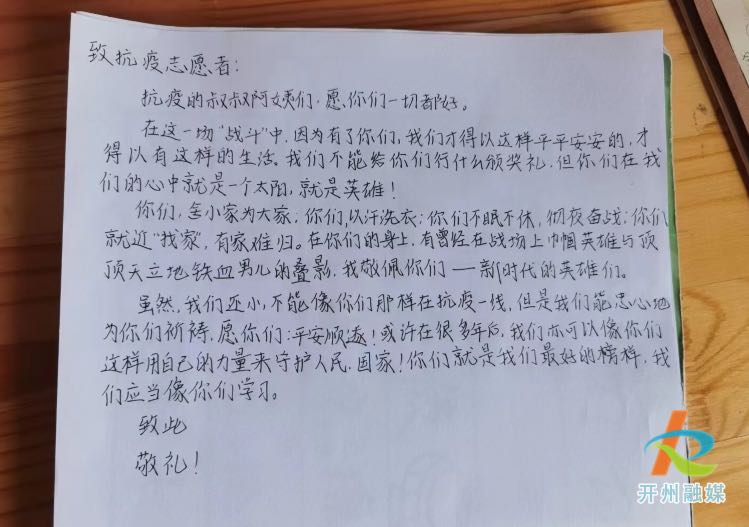 致抗疫志愿者：
抗疫的叔叔阿姨们，愿你们一切都好。
在这一场"战斗"中，因为有了你们，我们才得以这样平平安安的，才
得以有这样的生活。我们不能给你们行什么颁奖礼，但你们在我
们的心中就是一个太阳，就是英雄！
你们，舍小家为大家；你们，以汗洗衣；你们不眠不休，彻夜奋战；你们
就近"找家"，有家难归。在你们的身上，有曾经在战场上巾帼英雄与顶
顶天立地铁血男儿的叠影，我敬佩你们——新时代的英雄们。
虽然，我们还小，不能像你们那样在抗疫一线，但是我们能忠心地
为你们祈祷，愿你们：平安顺遂！或许在很多年后，我们亦可以像你们
这样用自己的力量来守护人民、国家！你们就是我们最好的榜样，我
们应当像你们学习。
致此
敬礼！
开州融媒